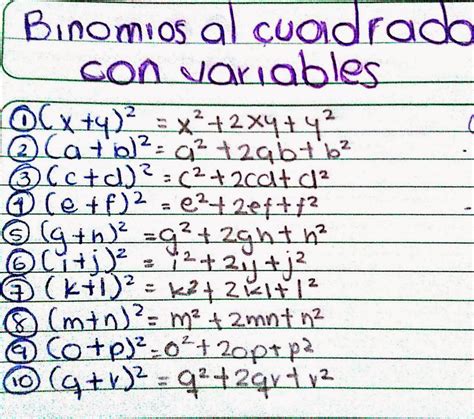 Binomios al cuadrado
con variables
① (x+y)² = x²+2xy+y²
② (a+b)² = a²+2ab+b²
③ (c+d)² = c²+2cd+d²
④ (e+f)² = e²+2ef+f²
⑤ (g+h)² = g²+2gh+h²
⑥ (i+j)² = i²+2ij+j²
⑦ (k+l)² = k²+2kl+l²
⑧ (m+n)² = m²+2mn+n²
⑨ (o+p)² = o²+2op+p²
⑩ (q+r)² = q²+2qr+r²